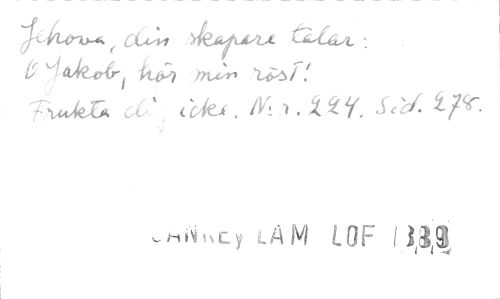 Jehova, din skapare talar:
O Jakob, hör min röst!
Frukta dig icke. N:r. 224. Sid. 278.
LAM LOF 1889